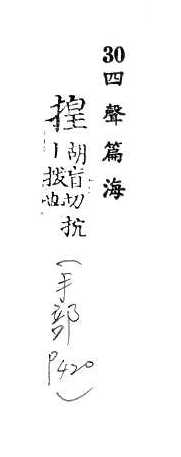 30四聲篇海
揘胡盲切抗
丨拔也
(手部P420)